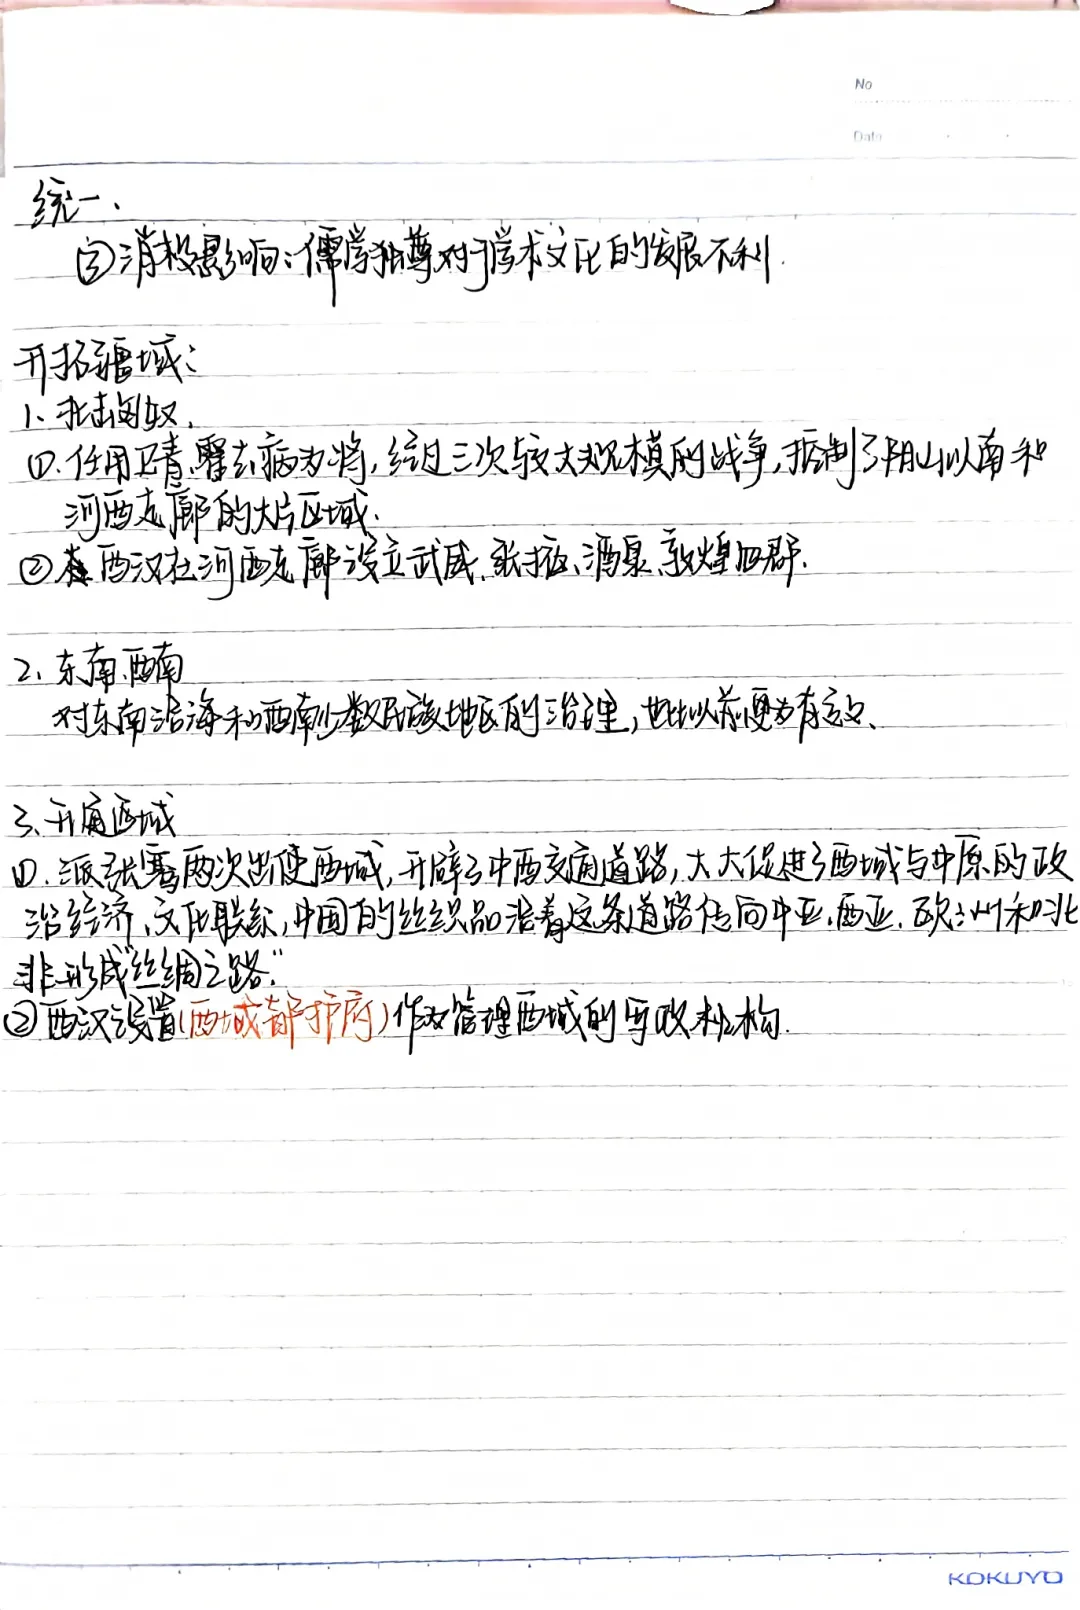 No
Date
统一.
②消极影响:儒学独尊对于学术文化的发展不利.
开拓疆域:
1、北击匈奴.
①.任用卫青.霍去病为将,经过三次较大规模的战争,控制了阴山以南和
河西走廊的大片区域.
②西汉在河西走廊设立武威.张掖、酒泉.敦煌四群.
2、东南.西南
对东南沿海和西南少数民族地区的治理,也比以前更为有效、
3、开通西域
①.派张骞两次出使西域,开辟了中西交通道路,大大促进了西域与中原的政
治经济、文化联系,中国的丝织品沿着这条道路传向中亚.西亚.欧洲和北
非.形成"丝绸之路."
②西汉设置(西域都护府)作为管理西域的军政机构.
KOKUYO